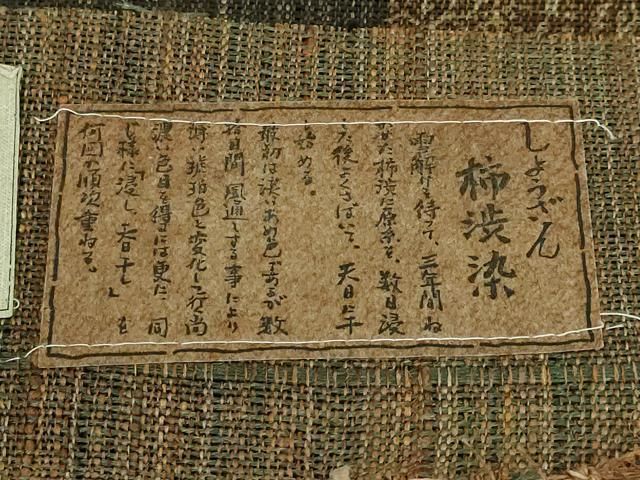 しょうざん
柿渋染
雪解けを待って、三年間ね
かせた柿渋に原糸を、数日浸
した後よくさばいて、天日に干
し始める。
最初は淡いあめ色であるが数
拾日間風通しする事により
薄い琥珀色と変化して行く尚
濃い色目を得るには更に同
じ様に「浸し、春日干し」を
何回か順次重ねる。